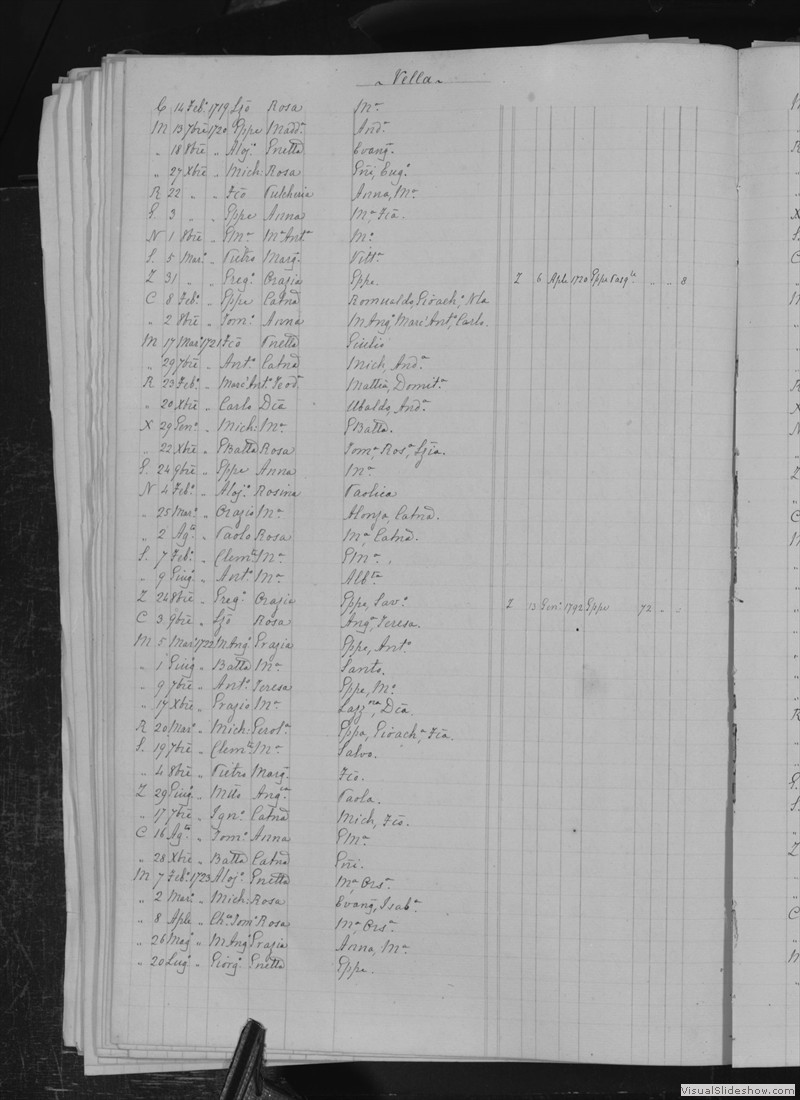 Vella
C 14 Feb: 1719 Ljō Rosa Mª
M 13 7bre 1720 Gppe Madd.ª And.ª
„ 18 8bre „ Aloj.º Gnetta Evang.
„ 27 Xbre „ Mich: Rosa Gni, Eug.º
R 22 „ „ Fcō Pulcheria Anna, Mª
G 3 „ „ Gppe Anna Mª, Fcā.
N 1 8bre „ Gmª Mª Antª Mª
S. 5 Mar.º „ Pietro Marg.ª Vittª
Z 31 „ „ Greg.º Orazia Gppe. Z 6 Aple 1720 Gppe Pasqle „ „ 8
C 8 Feb.º „ Gppe Catnā Romualdo, Gioach.º, Nla
„ 2 8bre „ Tom.º Anna M Ang.º, Marc' Ant.º, Carlo.
M 17 Mar.º 1721 Fcō Pnetta Giulio
„ 29 7bre „ Ant.º Catnā Mich, And.ª
R 23 Feb.º „ Marc' Ant.º Teod.ª Mattia, Domit.ª
„ 20 Xbre „ Carlo Dca Ubaldo, And.ª
X 29 Gen.º „ Mich: Mª GBatta.
„ 22 Xbre „ GBatta Rosa Tomª Rosª, Ljia.
G. 24 9bre „ Gppe Anna Mª
N 4 Feb.º „ Aloj.º Rosina Paolica
„ 25 Mar.º „ Orazio Mª Alonza, Catnā.
„ 2 Ag.º „ Paolo Rosa Mª Catnā.
S. 7 Feb.º „ Clemte Mª Gmª,
„ 9 Giug.º „ Ant.º Mª Albta
Z 24 8bre „ Greg.º Orazia Gppe, Sav.º Z 13 Gen.º 1792 Gppe 72 „ „
C 3 9bre „ Ljō Rosa Ang.ª, Teresa.
M 5 Mar.º 1722 M Ang.º Grazia Gppe, Ant.º
„ 1 Giug.º „ Batta Mª Santo.
„ 9 7bre „ Ant.º Teresa Gppe, Mª
„ 17 Xbre „ Grazio Mª Lazzra, Dca.
R 20 Mar.º „ Mich: Gerolª Gppa, Gioach.ª, Fcā.
S. 19 7bre „ Clemte Mª Salvo.
„ 4 8bre „ Pietro Marg.ª Fcō.
Z 29 Giug.º „ Mtto Angla Paola.
„ 17 7bre „ Ign.º Catnā Mich, Fcō.
C 16 Ag.º „ Tom.º Anna Gmª
„ 28 Xbre „ Batta Catnā Gni.
M 7 Feb.º 1723 Aloj.º Gnetta Mª, Ors.ª
„ 2 Mar.º „ Mich: Rosa Evang, Isab.ª
„ 8 Aple „ Chª Tom.º Rosa Mª, Ors.ª
„ 26 Mag.º „ M Ang.º Grazia Anna, Mª
„ 20 Lug.º „ Giorg.º Gnetta Gppe.
VisualSlideshow.com